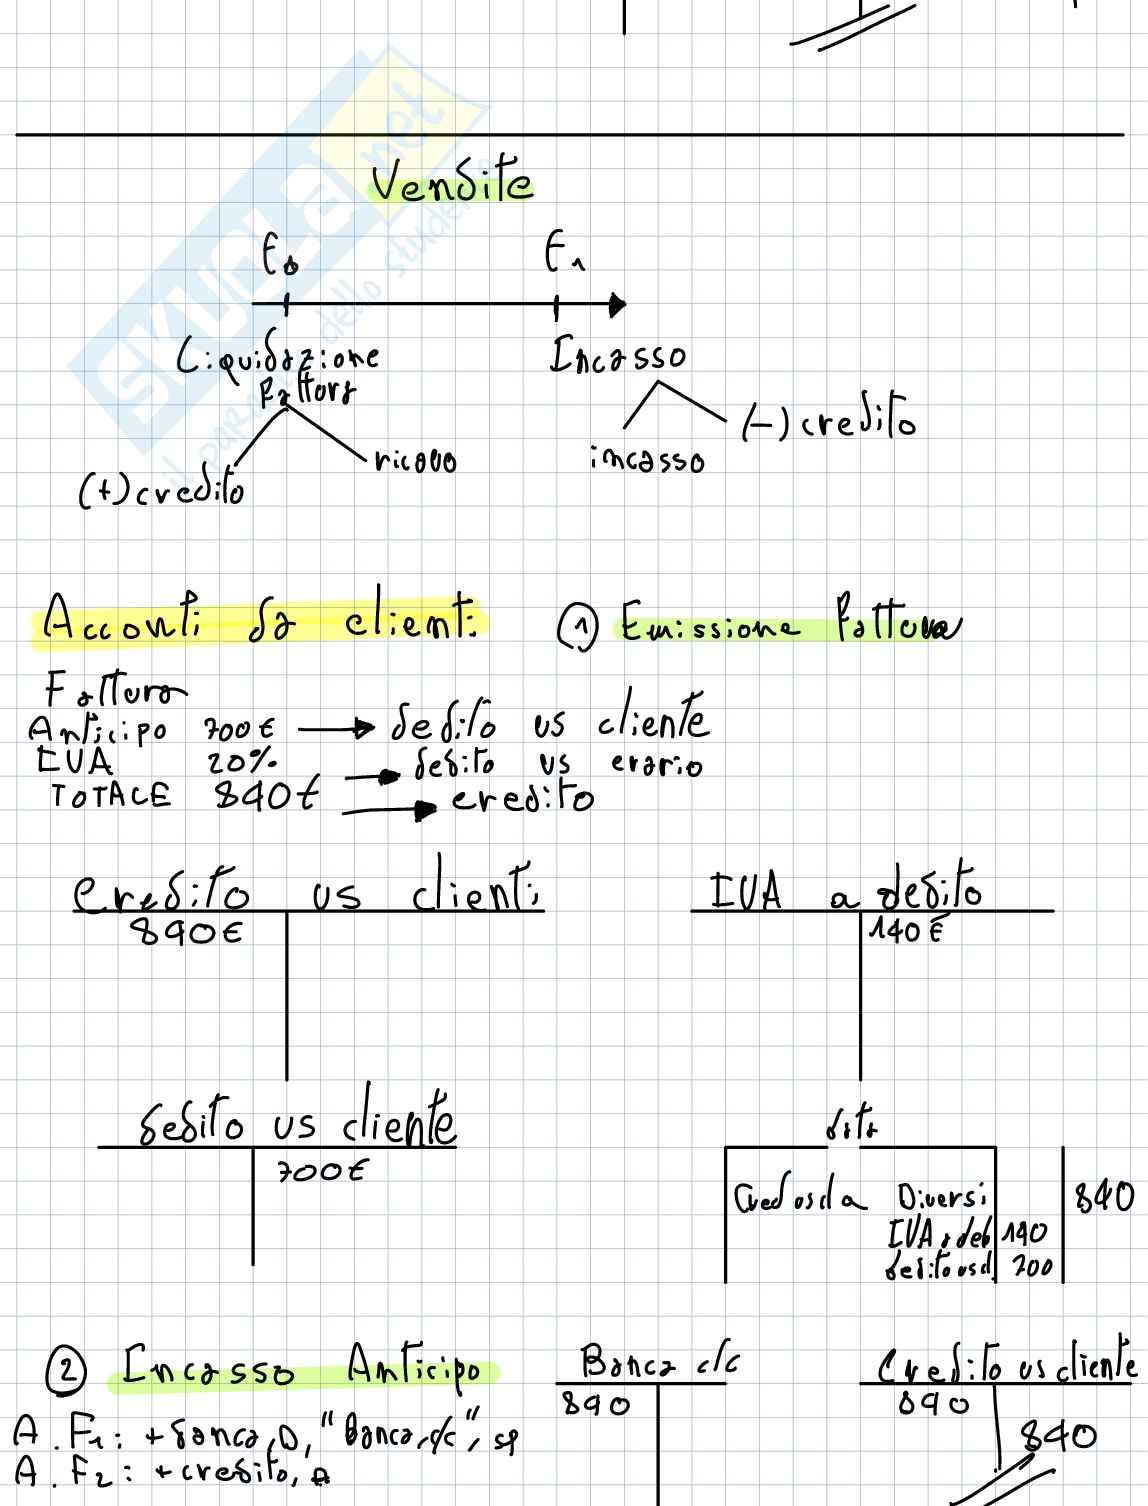 Vendite
F₀ F₁
Liquidazione Incasso
fattura
(-) credito
ricavo incasso
(+) credito
Acconti da clienti ① Emissione fattura
Fattura
Anticipo 700€ → debito vs cliente
IVA 20% → debito vs erario
TOTALE 840€ → credito
Credito vs clienti IVA a debito
840€ 140€
debito vs cliente
700€
data
Cred vs cl a Diversi 840
IVA a deb 140
debito vs cl. 700
② Incasso Anticipo Banca c/c Credito vs cliente
840 840
A. F₁: + banca, D, "Banca c/c", sp 840
A. F₂: + credito, A
SKUOLA.net
il paradiso dello studente